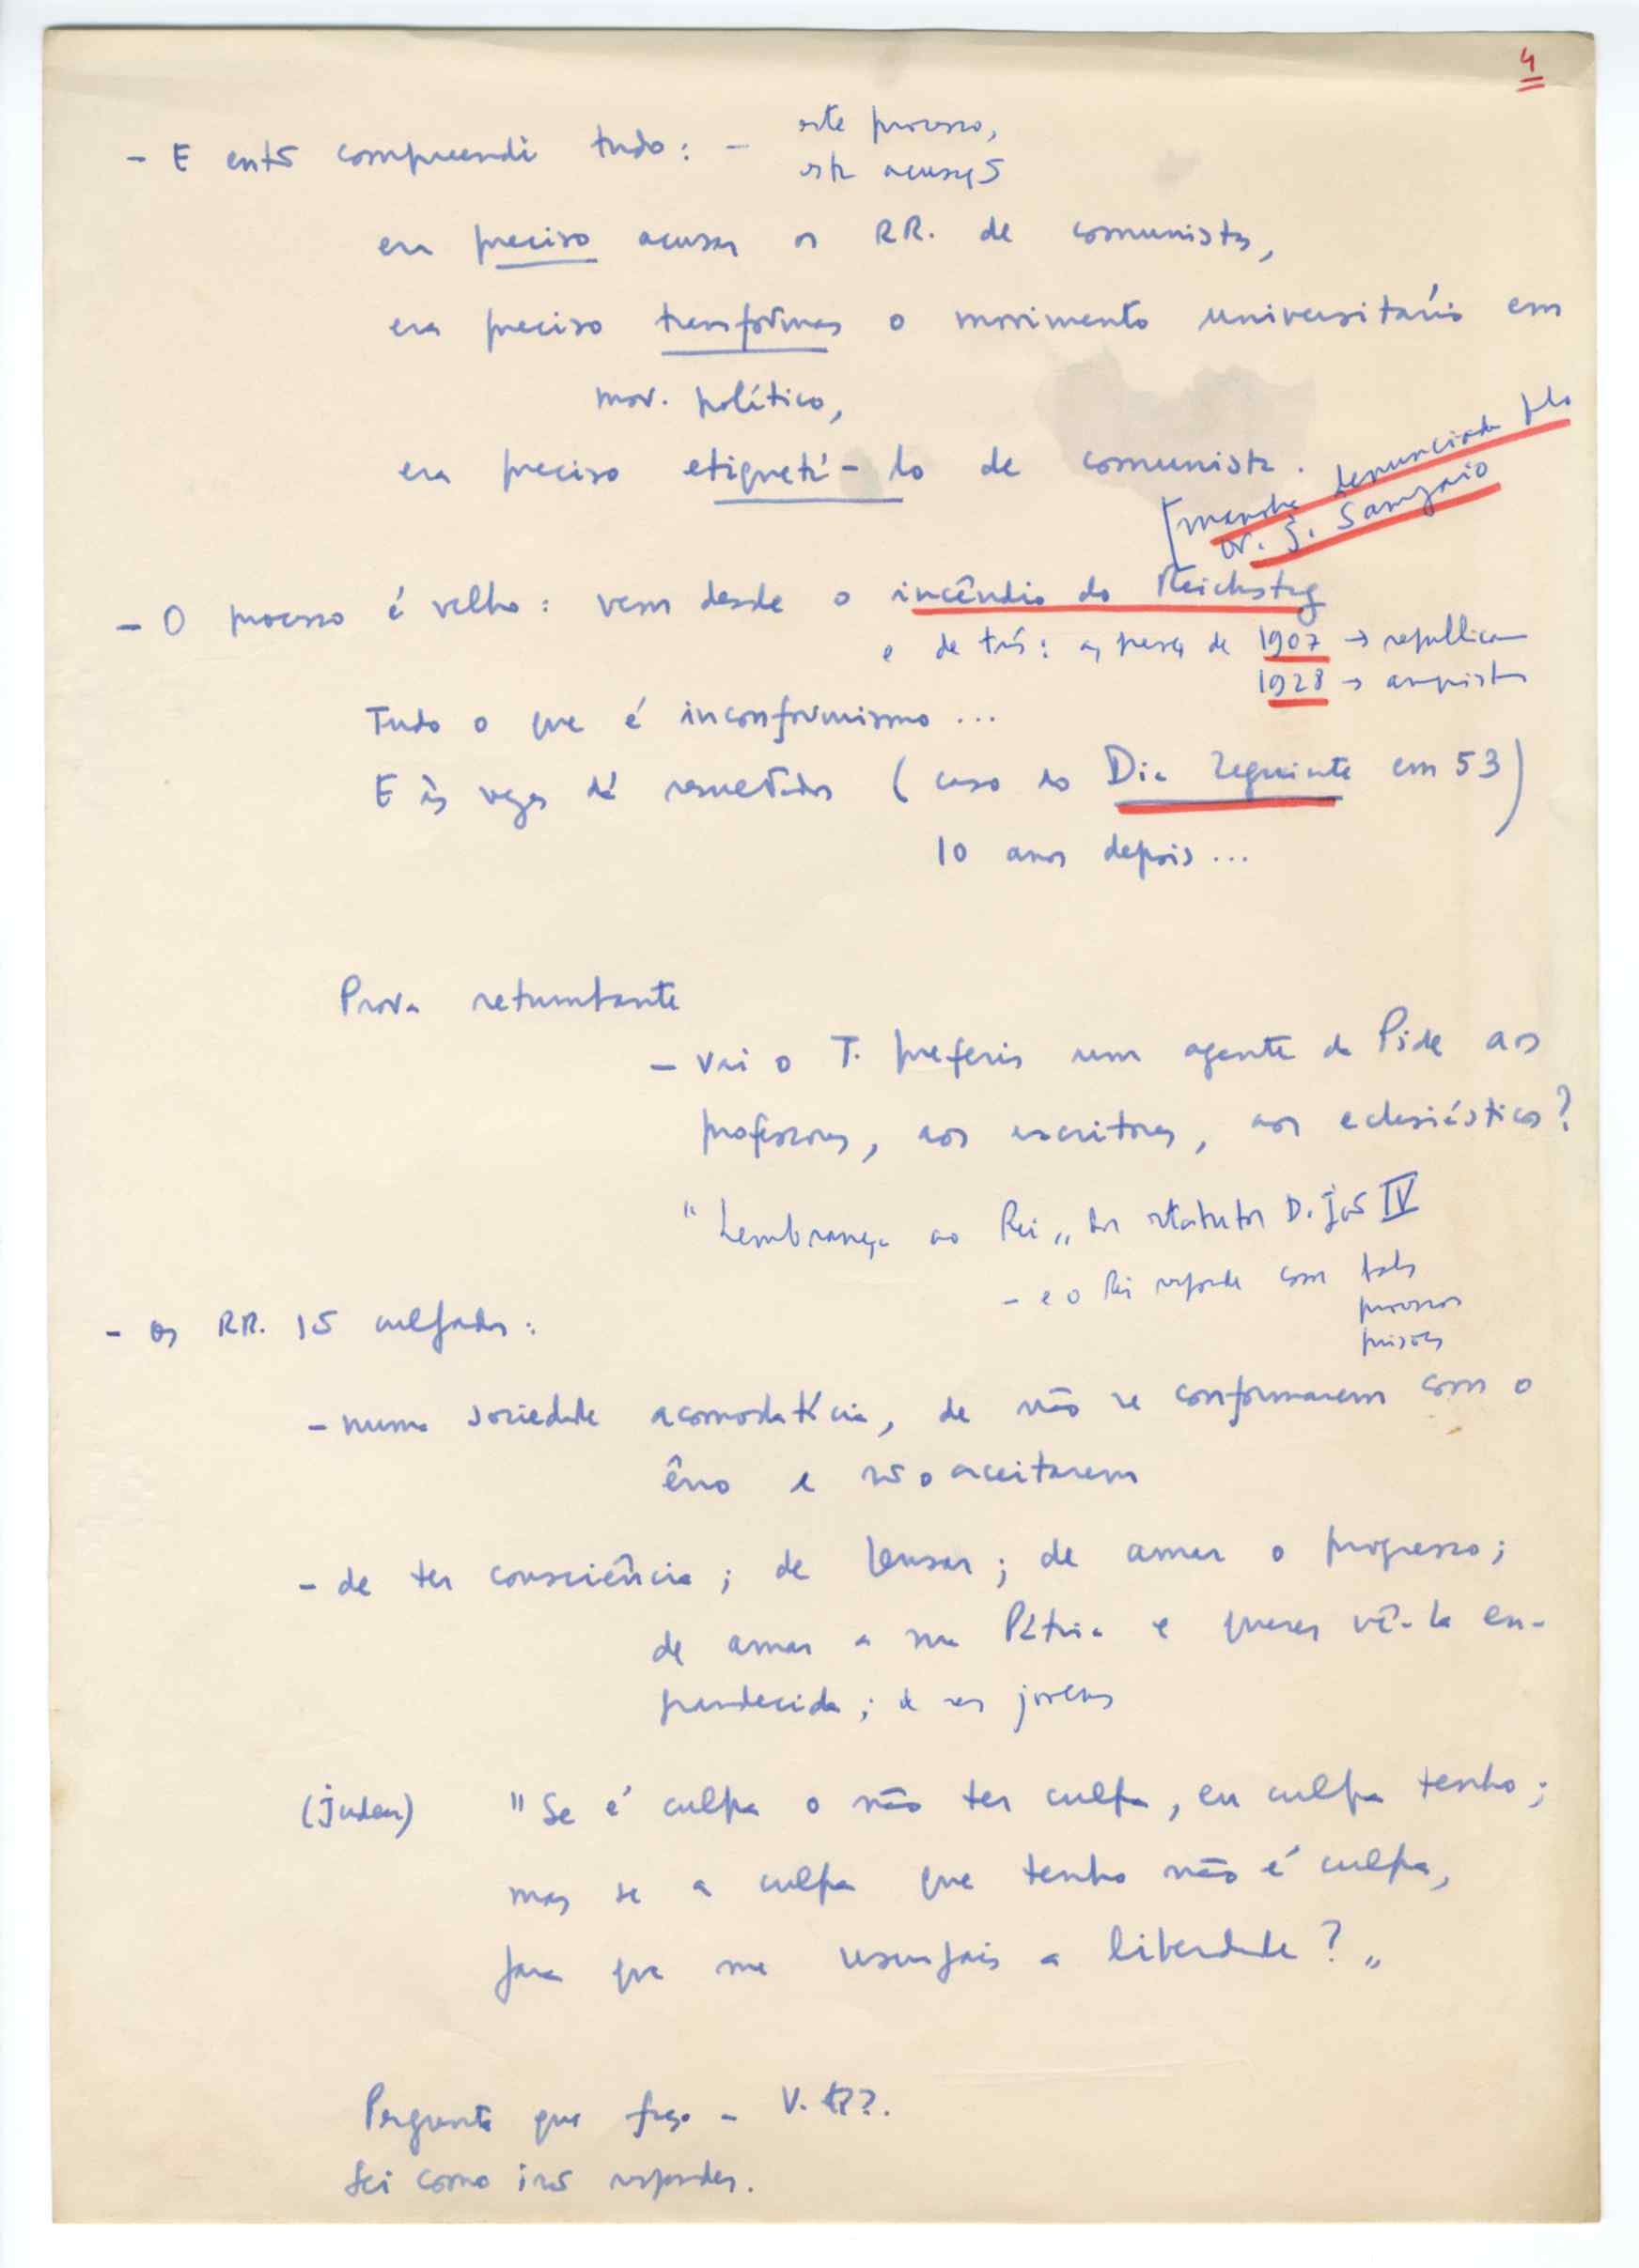 4
- E entã compreendi tudo: - este processo,
esta acusaçã
era preciso acusar os RR. de comunistas,
era preciso transformar o movimento universitário em
mov. político,
era preciso etiquetá-lo de comunista.
[mancha denunciada pelo
Dr. J. Sampaio
- O processo é velho: vem desde o incêndio do Reichstag
e de trás: as greves de 1907 → republicana
1928 → anarquista
Tudo o que é inconformismo ...
E às vezes dá resultados (caso do Dia Seguinte em 53)
10 anos depois ...
Prova retumbante
- Vai o T. preferir um agente da Pide aos
professores, aos escritores, aos eclesiásticos?
"Lembrança ao Rei" dos estatutos D. Joã IV
- e o Rei responde com
processos
prisões
- Os RR. sã culpados:
- numa sociedade acomodatícia, de não se conformarem com o
êrro e nã o aceitarem
- de ter consciência; de pensar; de amar o progresso;
de amar a sua Pátria e querer vê-la en-
grandecida; de ser jovens
(Judeu) "Se é culpa o não ter culpa, eu culpa tenho;
mas se a culpa que tenho não é culpa,
para que me usurpais a liberdade?"
Pergunta que faço - V.
Sei como irã responder.